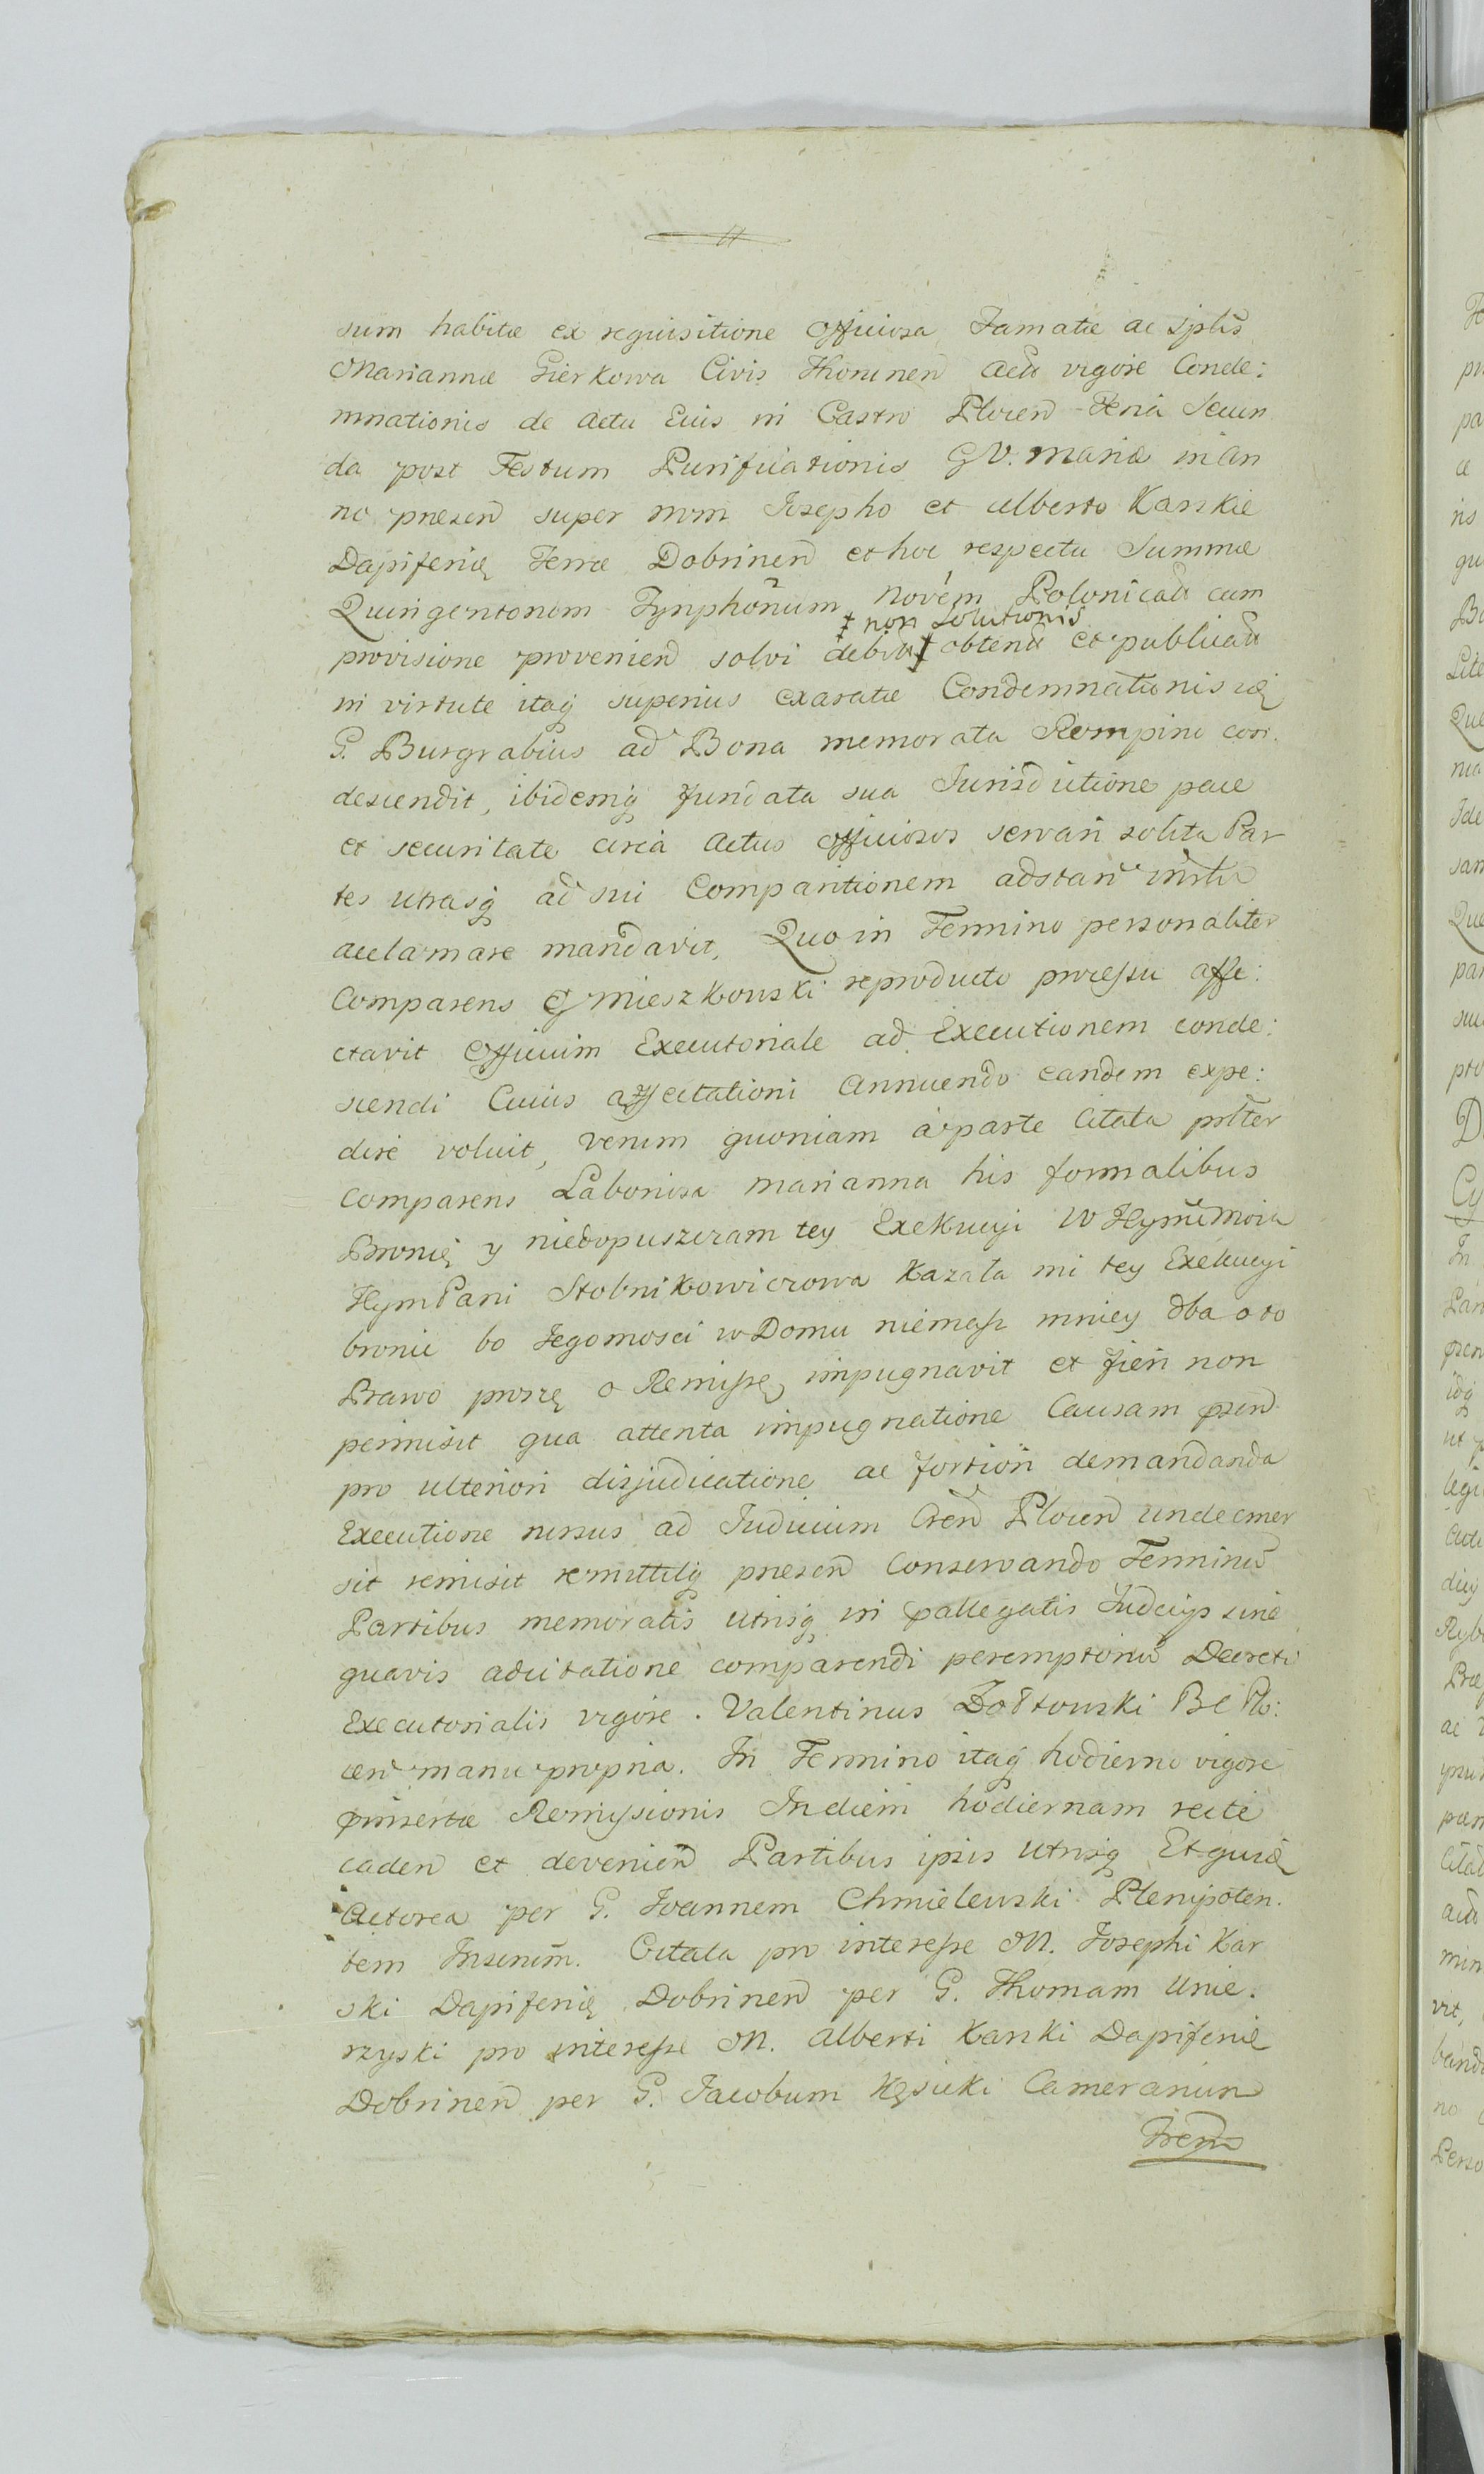 sum habitæ ex requisitione officiosa Famatæ ac Spblis
Mariannæ Gierkowa Civis Thorunen Actu vigore Conde:
mnationis de Actu Eius in Castro Plocen Feria Secun
da post Festum Purificationis G V. Mariæ in An
no præsen super mm Josepho et Alberto Karskie
Dapiferię Terræ Dobrinen et hoc respectu Summæ
Quingentorum Tynphorum novem Polonicali cum
‡ non Solutionis
provisione provenien solvi debitæ ‡ obtentu et publicatu
in virtute itaq superius exaratæ Condemnationis idę
G. Burgrabius ad Bona memorata Rempino con.
descendit, ibidemq fundata sua Jurisdictione pace
et securitate circa Actus officiosos servari solita Par
tes utrasq ad sui Comparitionem adstare
acclamare mandavit. Quo in Termino personaliter
Comparens G Mieszkowski reproducto processu affe:
ctavit Officium Executoriale ad Executionem conde:
scendi Cuius affectationi Annuendo eandem expe:
dire voluit, Verum quoniam à parte Citata prltter
Comparens Laboriosa Marianna his formalibus
Bronię y niedopuszczam tey Exekucyi W Hymemoia
HymPani Stobnikowiczowa Kazała mi tey Exekucyi
bronić bo Jegomosci w Domu niemasz mniey dba o to
Prawo proszę o Remissę, impugnavit et fieri non
permisit qua attenta impugnatione Causam præsen
pro ulteriori disjudicatione ac fortiori demandanda
Executione rursus ad Judicium Cren Plocen unde emer
sit remisit remittitq præsen Conservando Terminu
Partibus memoratis utrisq in præallegatis Judicys sine
quavis adcitatione comparendi peremptoriu Decreti
Executorialis vigore. Valentinus Zołtowski B C Plo:
cen manu propria. In Termino itaq hodierno vigore
præinsertæ Remissionis In diem hodiernam recte
caden et devenien Partibus ipsis utrisq Et quidę
Actorea per G. Joannem Chmielewski Plenipoten.
tem Inserum. Citata pro interesse M. Josephi Kar
ski Dapiferię Dobrinen per G. Thomam Unie.
rzyski pro interesse M. Alberti Karski Dapiferię
Dobrinen per G. Jacobum Kęsicki Camerarium
Tren